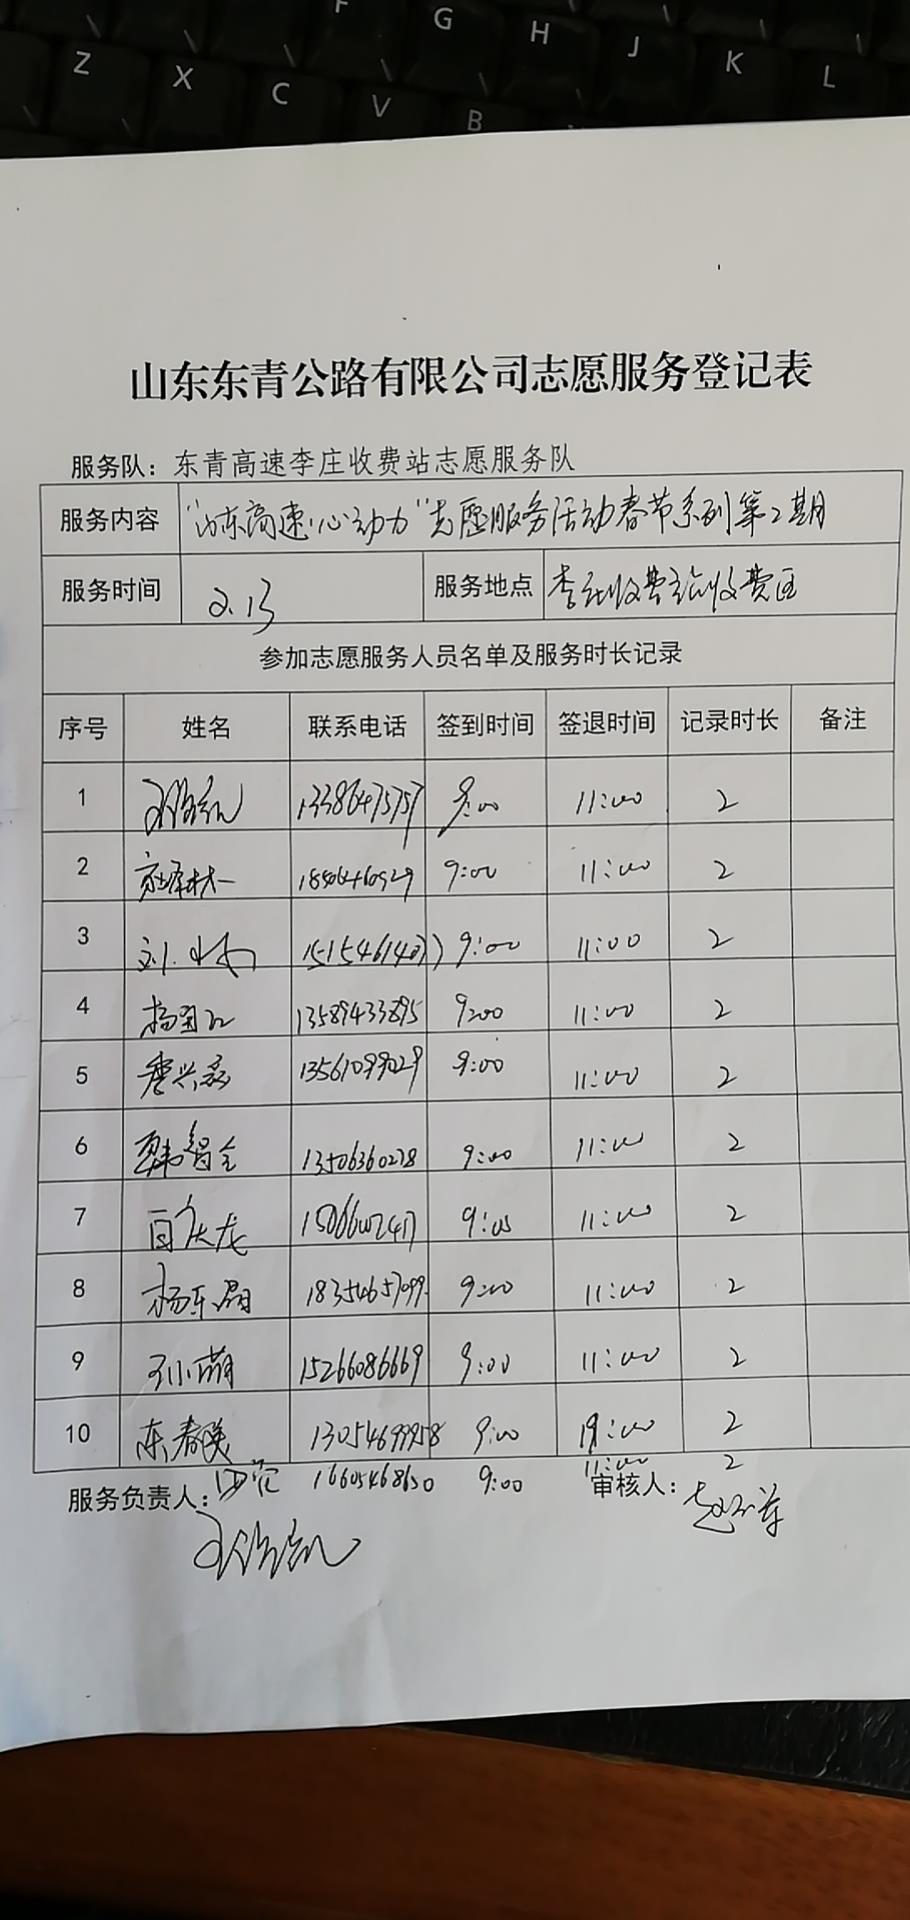 F G H J K L
Z X C V B
山东东青公路有限公司志愿服务登记表
服务队：东青高速李庄收费站志愿服务队
服务内容 "山东高速·心动力"志愿服务活动春节系列第2期
服务时间 2.13 服务地点 李庄收费站收费区
参加志愿服务人员名单及服务时长记录
序号 姓名 联系电话 签到时间 签退时间 记录时长 备注
1 9:00 11:00 2
2 9:00 11:00 2
3 9:00 11:00 2
4 13589433895 9:00 11:00 2
5 13561099029 9:00 11:00 2
6 韩智全 13506360278 9:00 11:00 2
7 9:00 11:00 2
8 杨东 9:00 11:00 2
9 孙小萌 15266086669 9:00 11:00 2
10 东春 13054699958 9:00 2
16605468650 9:00 11:00 2
服务负责人： 审核人：